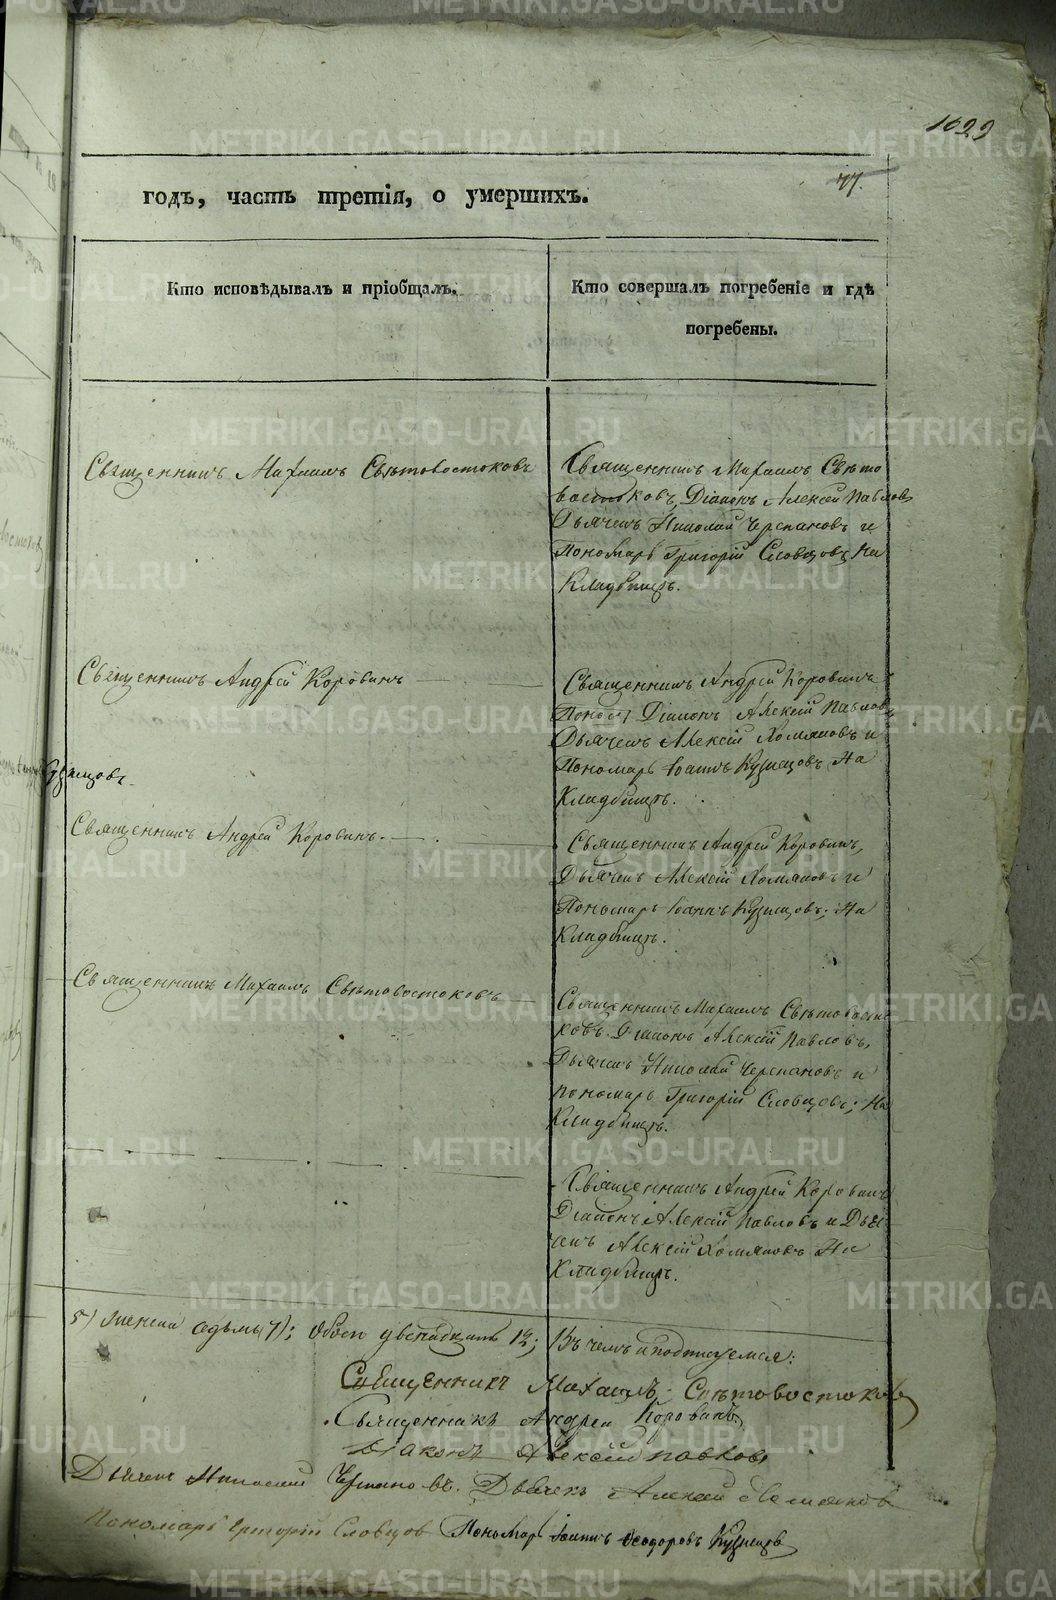 1099
77.
годъ, часть третія, о умершихъ.
Кто исповѣдывалъ и пріобщалъ.
Кто совершалъ погребеніе и гдѣ
погребены.
Священникъ Михаилъ Свѣтовостоковъ
Священникъ Михаилъ Свѣто
востоковъ, Діаконъ Алексѣй Павловъ
Дьячекъ Николай Черепановъ и
Пономарь Григорій Словцовъ, На
Кладбищѣ.
Священникъ Андрей Коровинъ
Священникъ Андрей Коровинъ
Діаконъ Алексій Павловъ
Дьячекъ Алексій Хомяковъ и
Пономарь Іоаннъ Кузнецовъ, На
Кладбищѣ.
Кузнецовъ.
Священникъ Андрей Коровинъ.
Священникъ Андрей Коровинъ,
Дьячекъ Алексій Хомяковъ и
Пономарь Іоаннъ Кузнецовъ; На
Кладбищѣ.
Священникъ Михаилъ Свѣтовостоковъ
Священникъ Михаилъ Свѣтовосто
ковъ. Діаконъ Алексій Павловъ,
Дьячекъ Николай Черепановъ и
пономарь Григорій Словцовъ; На
Кладбищѣ.
Священникъ Андрей Коровинъ
Діаконъ Алексій Павловъ и Дья
чекъ Алексій Хомяковъ На
Кладбищѣ.
5) женска седмь (7); обоего двенадцать 12; Въ чемъ и подписуемся:
Священникъ Михаилъ Свѣтовостоковъ
Священникъ Андрей Коровинъ
Діаконъ Алексій Павловъ
Дьячекъ Николай Черепановъ. Дьячекъ Алексей Хомяковъ
Пономарь Григорій Словцов Пономарь Іоаннъ Феодоровъ Кузнецовъ
METRIKI.GASO-URAL.RU